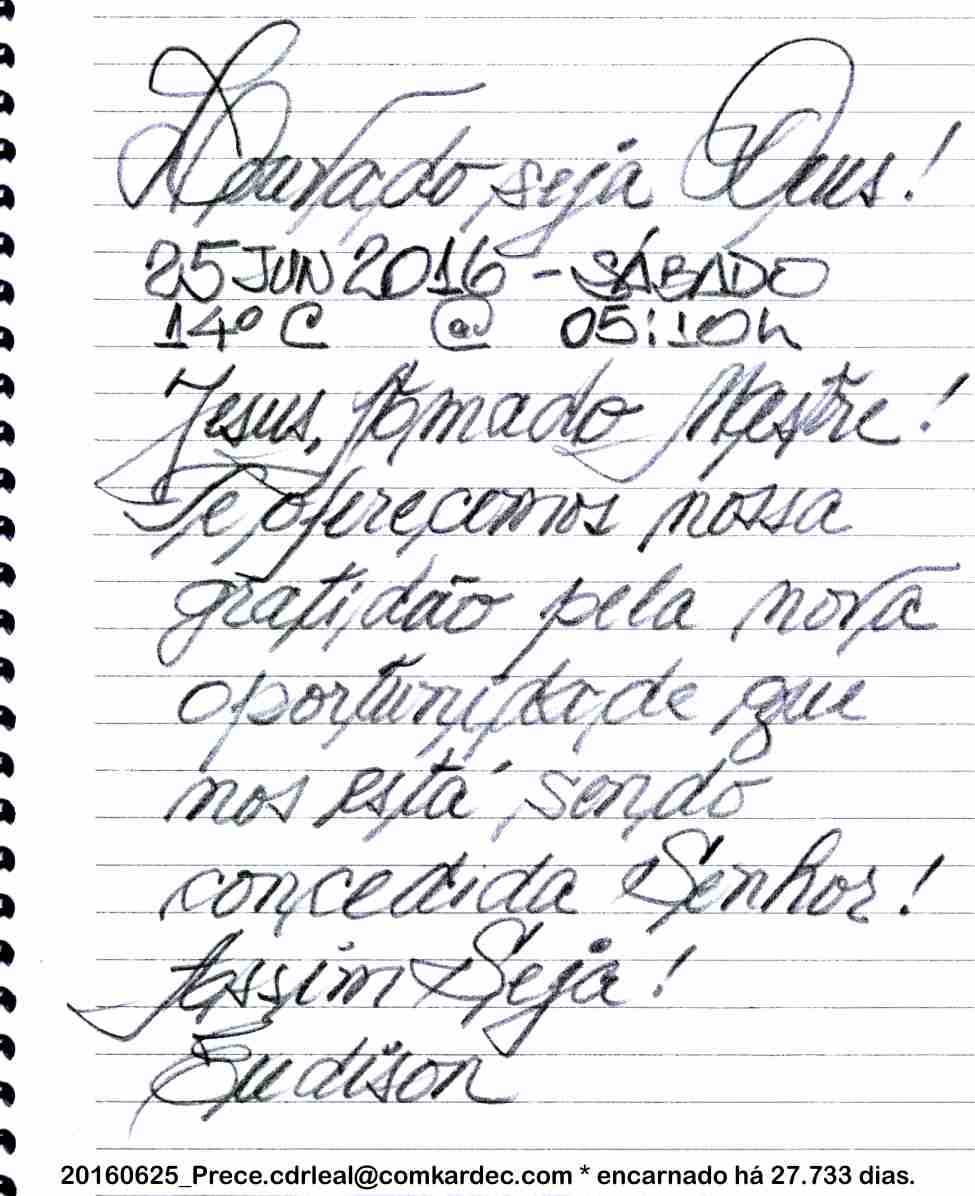 Louvado seja Deus!
25 JUN 2016 - SÁBADO
14º C @ 05:10h
Jesus, Amado Mestre!
Te oferecemos nossa
gratidão pela nova
oportunidade que
nos está sendo
concedida Senhor!
Assim Seja!
Eudison
20160625_Prece.cdrleal@comkardec.com * encarnado há 27.733 dias.